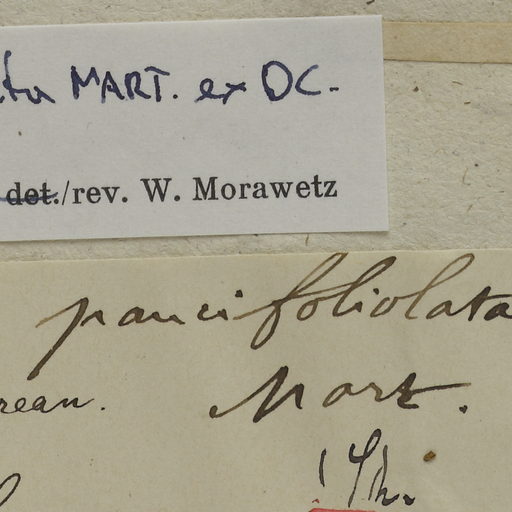 MART. ex DC.
det./rev. W. Morawetz
paucifoliolata
Mart.